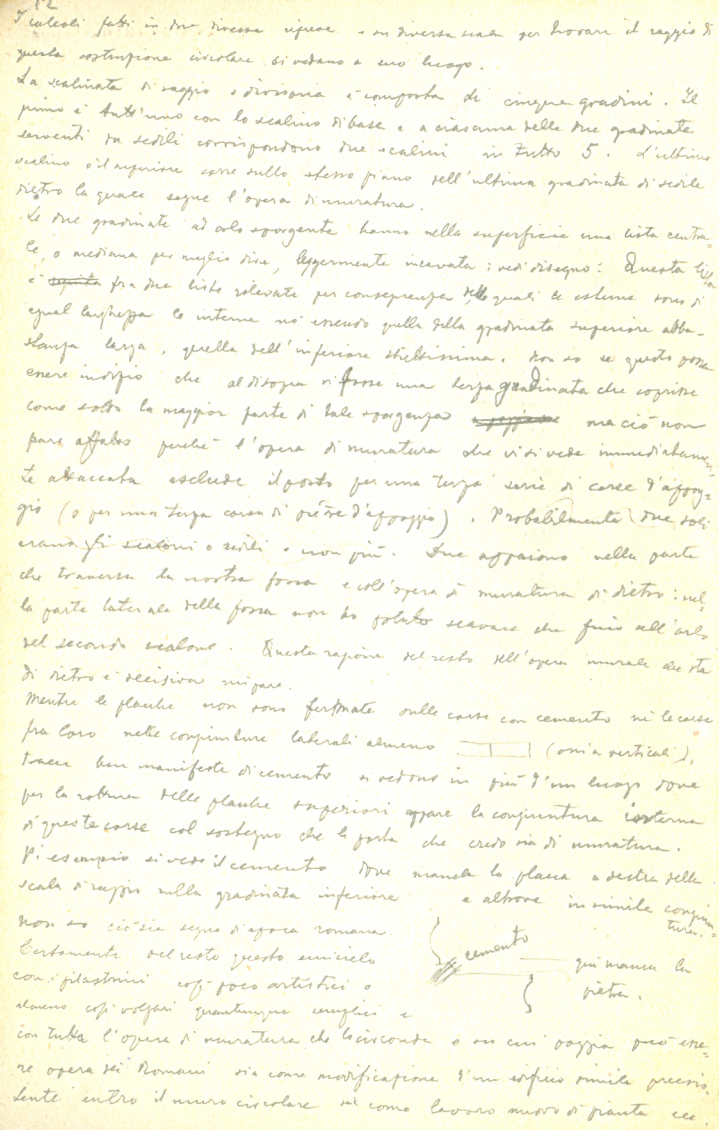 12
I calcoli fatti in due diverse riprese e su diversa scala per trovare il raggio di
questa costruzione circolare si vedano a suo luogo.
La scalinata di raggio o divisoria è composta di cinque gradini. Il
primo è tutt'uno con lo scalino di base e a ciascuna delle due gradinate
serventi da sedili corrispondono due scalini in tutto 5. L'ultimo
scalino o il superiore corre sullo stesso piano dell'ultima gradinata di sedile
dietro la quale segue l'opera di muratura.
Le due gradinate ad orlo sporgente hanno nella superficie una lista centra-
le, o mediana per meglio dire, leggermente incavata: vedi disegno: Questa lista
è fra due liste rilevate per conseguenza delle quali le esterne sono di
egual larghezza le interne no essendo quella della gradinata superiore abba-
stanza larga, quella dell'inferiore strettissima. Non so se questo possa
essere indizio che al disopra vi fosse una terza gradinata che coprisse
come solito la maggior parte di tale sporgenza ma ciò non
pare affatto perché l'opera di muratura che vi si vede immediatamen-
te attaccata esclude il posto per una terza serie di casse d'appog-
gio (o per una terza corsa di pietre d'appoggio). Probabilmente due soli
erano gli scaloni o sedili e non più. Due appaiono nella parte
che traversa la nostra fossa e coll'opera di muratura di dietro: nel-
la parte laterale della fossa non ho potuto scavare che fino all'orlo
del secondo scalone. Questa ragione del resto dell'opera murale che sta
di dietro è decisiva mi pare.
Mentre le placche non sono fermate sulle casse con cemento né le casse
fra loro nelle congiunture laterali almeno (ossia verticali),
tracce ben manifeste di cemento si vedono in più d'un luogo dove
per la rottura delle placche superiori appare la congiuntura interna
di queste casse col sostegno che le porta che credo sia di muratura.
P. esempio si vede il cemento dove manca la placca a destra della
scala di raggio sulla gradinata inferiore e altrove in simile congiun-
tura.
Non so ciò sia segno d'epoca romana.
Certamente del resto questo emiciclo
con i pilastrini così poco artistici o
almeno così volgari quantunque semplici e
cemento
qui manca la
pietra.
con tutta l'opera di muratura che lo circonda e su cui poggia può esse-
re opera dei Romani sia come modificazione d'un edificio simile preesis-
tente entro il muro circolare sia come lavoro nuovo di pianta ecc.